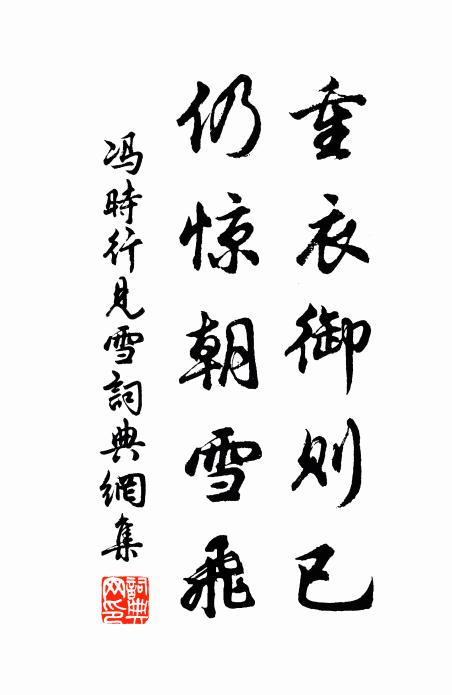 重衣御则已
仍惊朝雪飛
冯時行見雪詞典網集
詞典網印